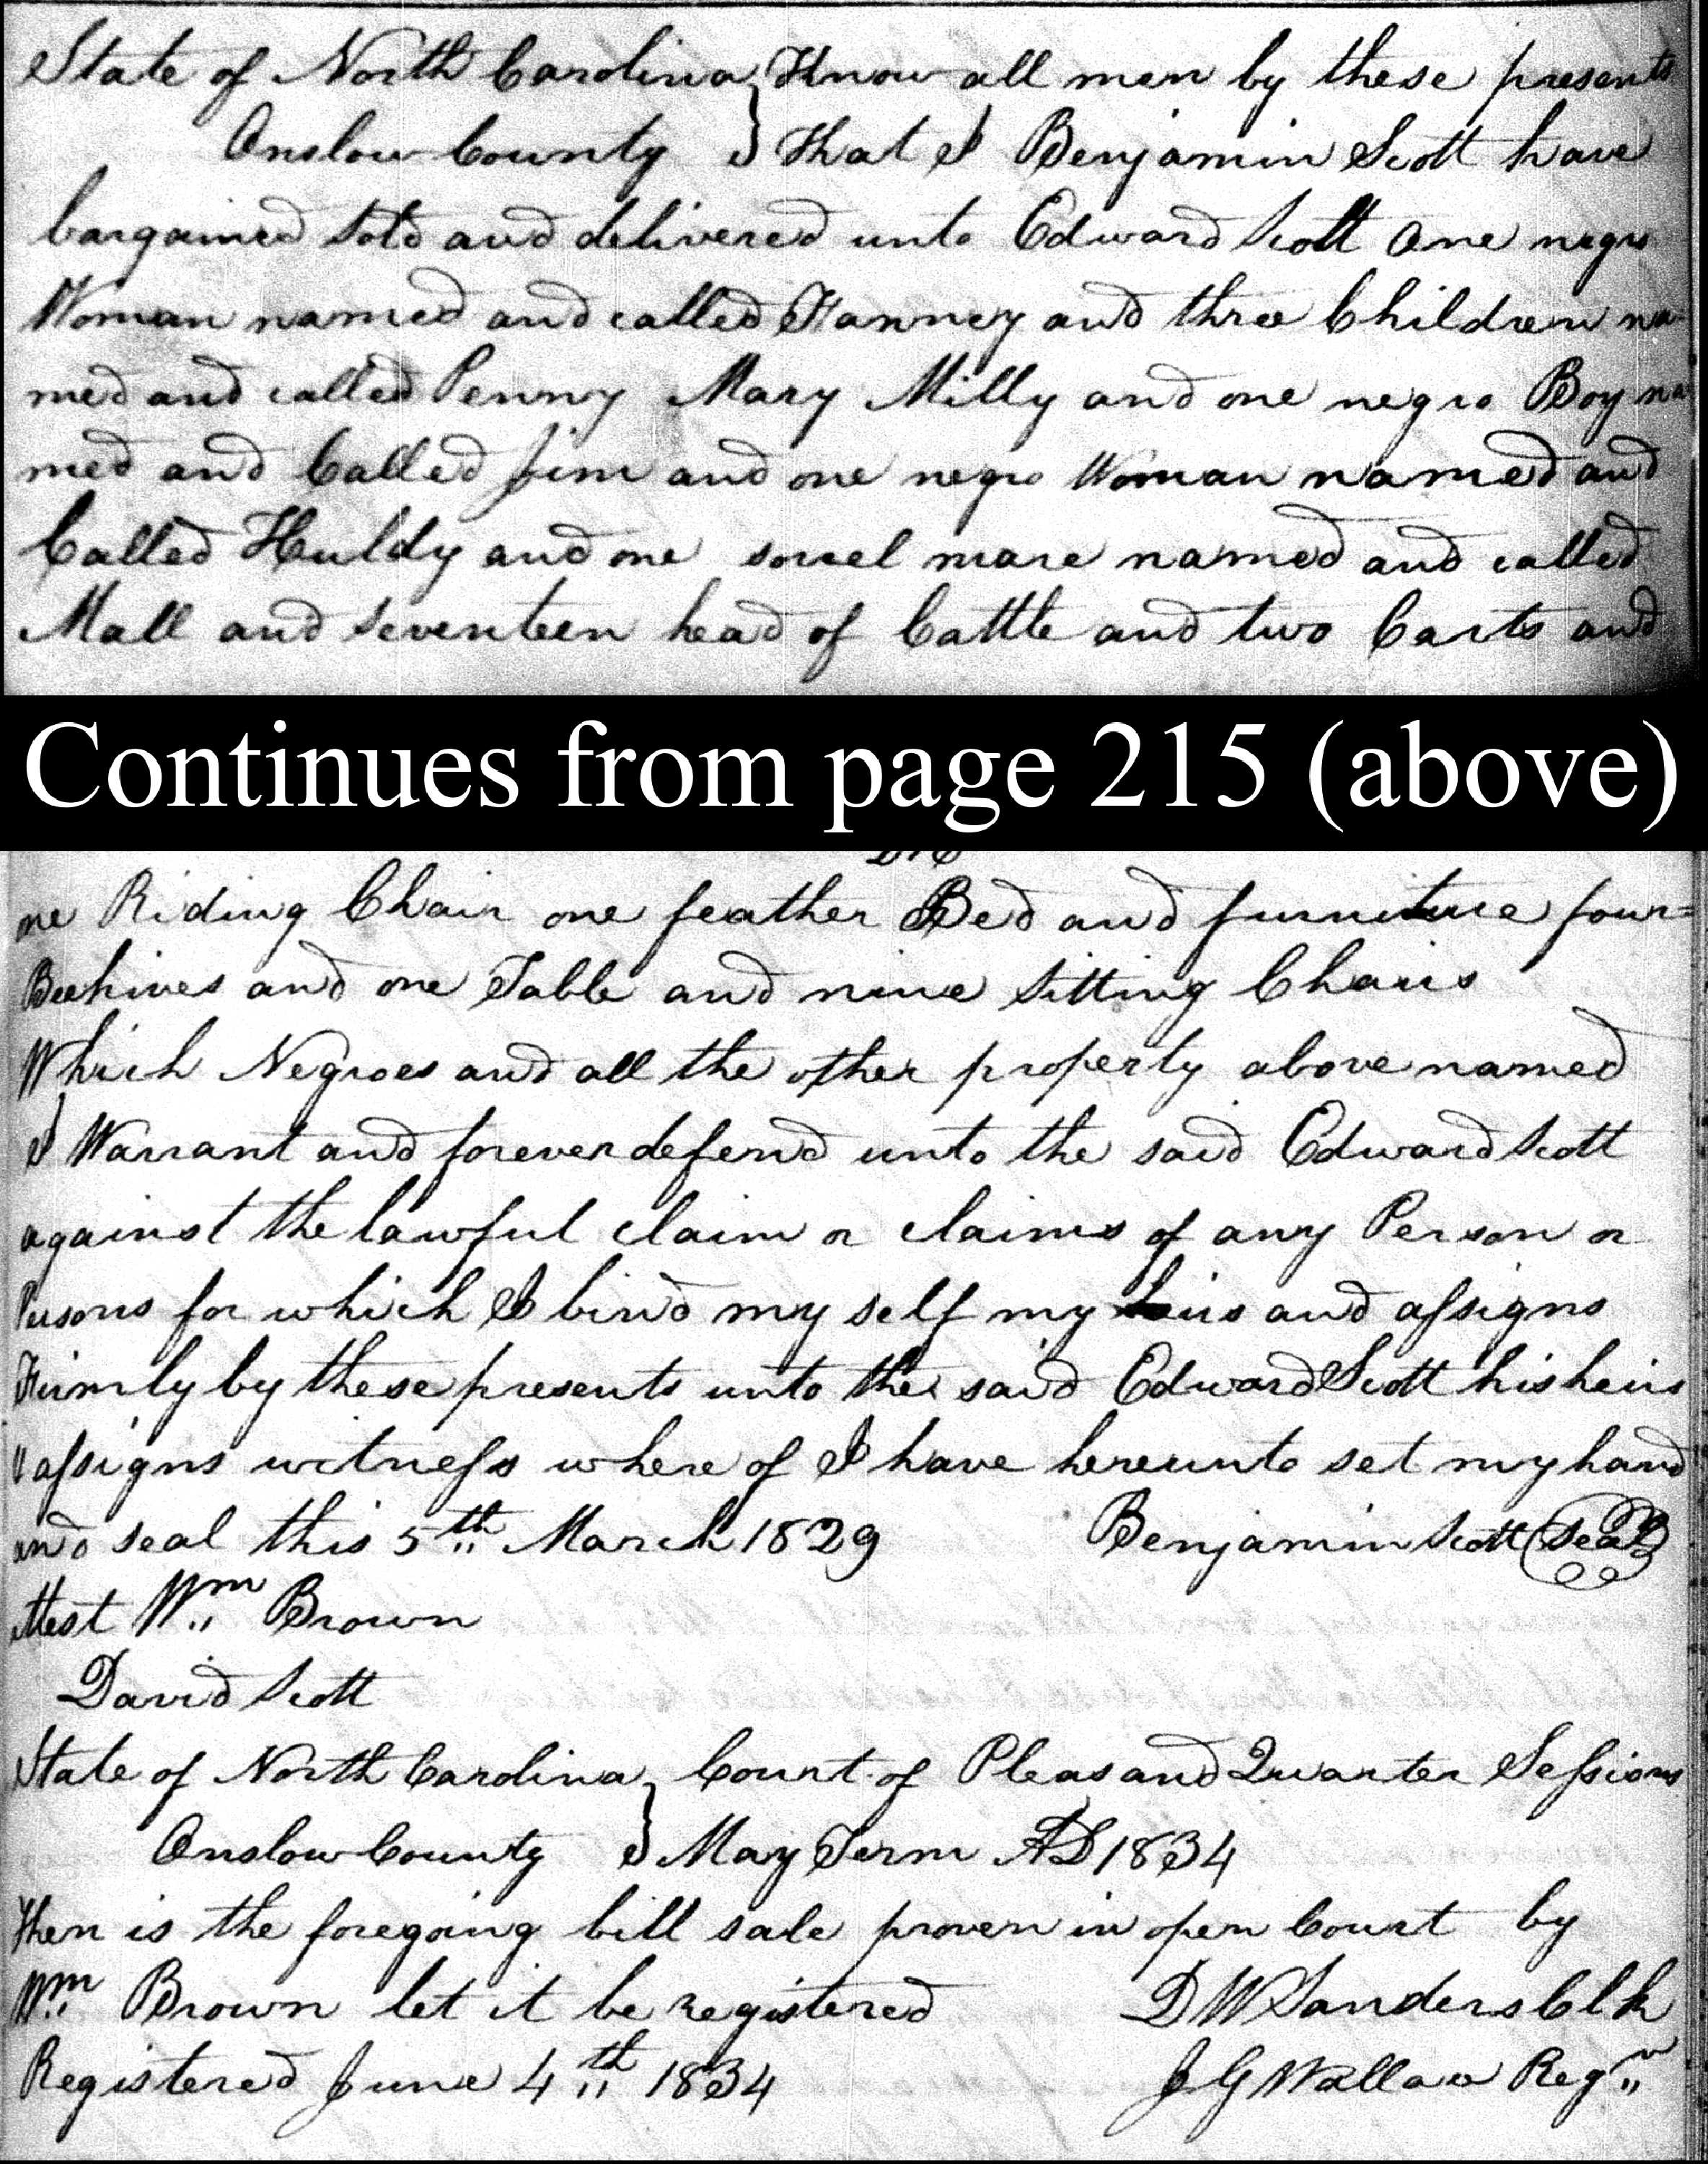 State of North Carolina } Know all men by these presents
Onslow County } that I Benjamin Scott have
bargained sold and delivered unto Edward Scott One negro
Woman named and called Fanney and three Children na
med and called Penny Mary Milly and one negro Boy na
med and Called Jim and one negro Woman named and
Called Huldy and one sorrel mare named and called
Mall and seventeen head of Cattle and two Carts and
Continues from page 215 (above)
one Riding Chair one feather Bed and furniture four=
Beehives and one Table and nine sitting Chairs
Which Negroes and all the other property above named
I Warrant and forever defend unto the said Edward Scott
against the lawful claim or claims of any Person or
Persons for which I bind my self my heirs and assigns
Firmly by these presents unto the said Edward Scott his heirs
assigns witness where of I have hereunto set my hand
and seal this 5th March 1829 Benjamin Scott (Seal)
attest Wm Brown
David Scott
State of North Carolina } Court of Pleas and Quarter Sessions
Onslow County } May Term AD 1834
Then is the foregoing bill sale proven in open Court by
Wm Brown let it be registered D W Sanders Clk
Registered June 4th 1834 J G Wallace Regr